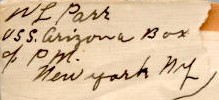 W L Parr
U.S.S. Arizona Box
of P.M.
New York NY